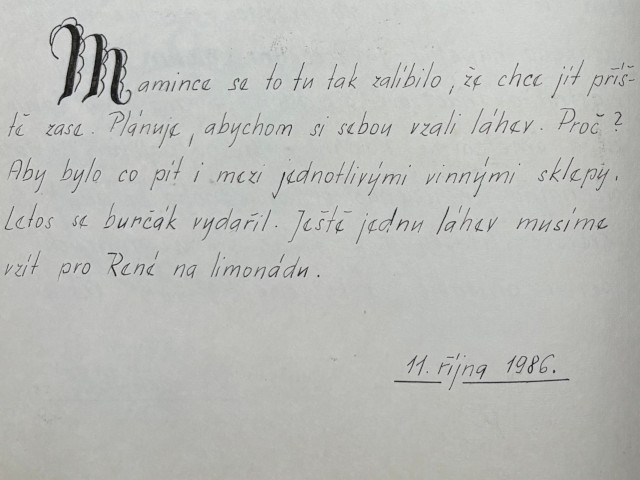 Mamince se to tu tak zalíbilo, že chce jít příš-
tě zase. Plánuje, abychom si sebou vzali láhev. Proč?
Aby bylo co pít i mezi jednotlivými vinnými sklepy.
Letos se burčák vydařil. Ještě jednu láhev musíme
vzít pro René na limonádu.
11. října 1986.